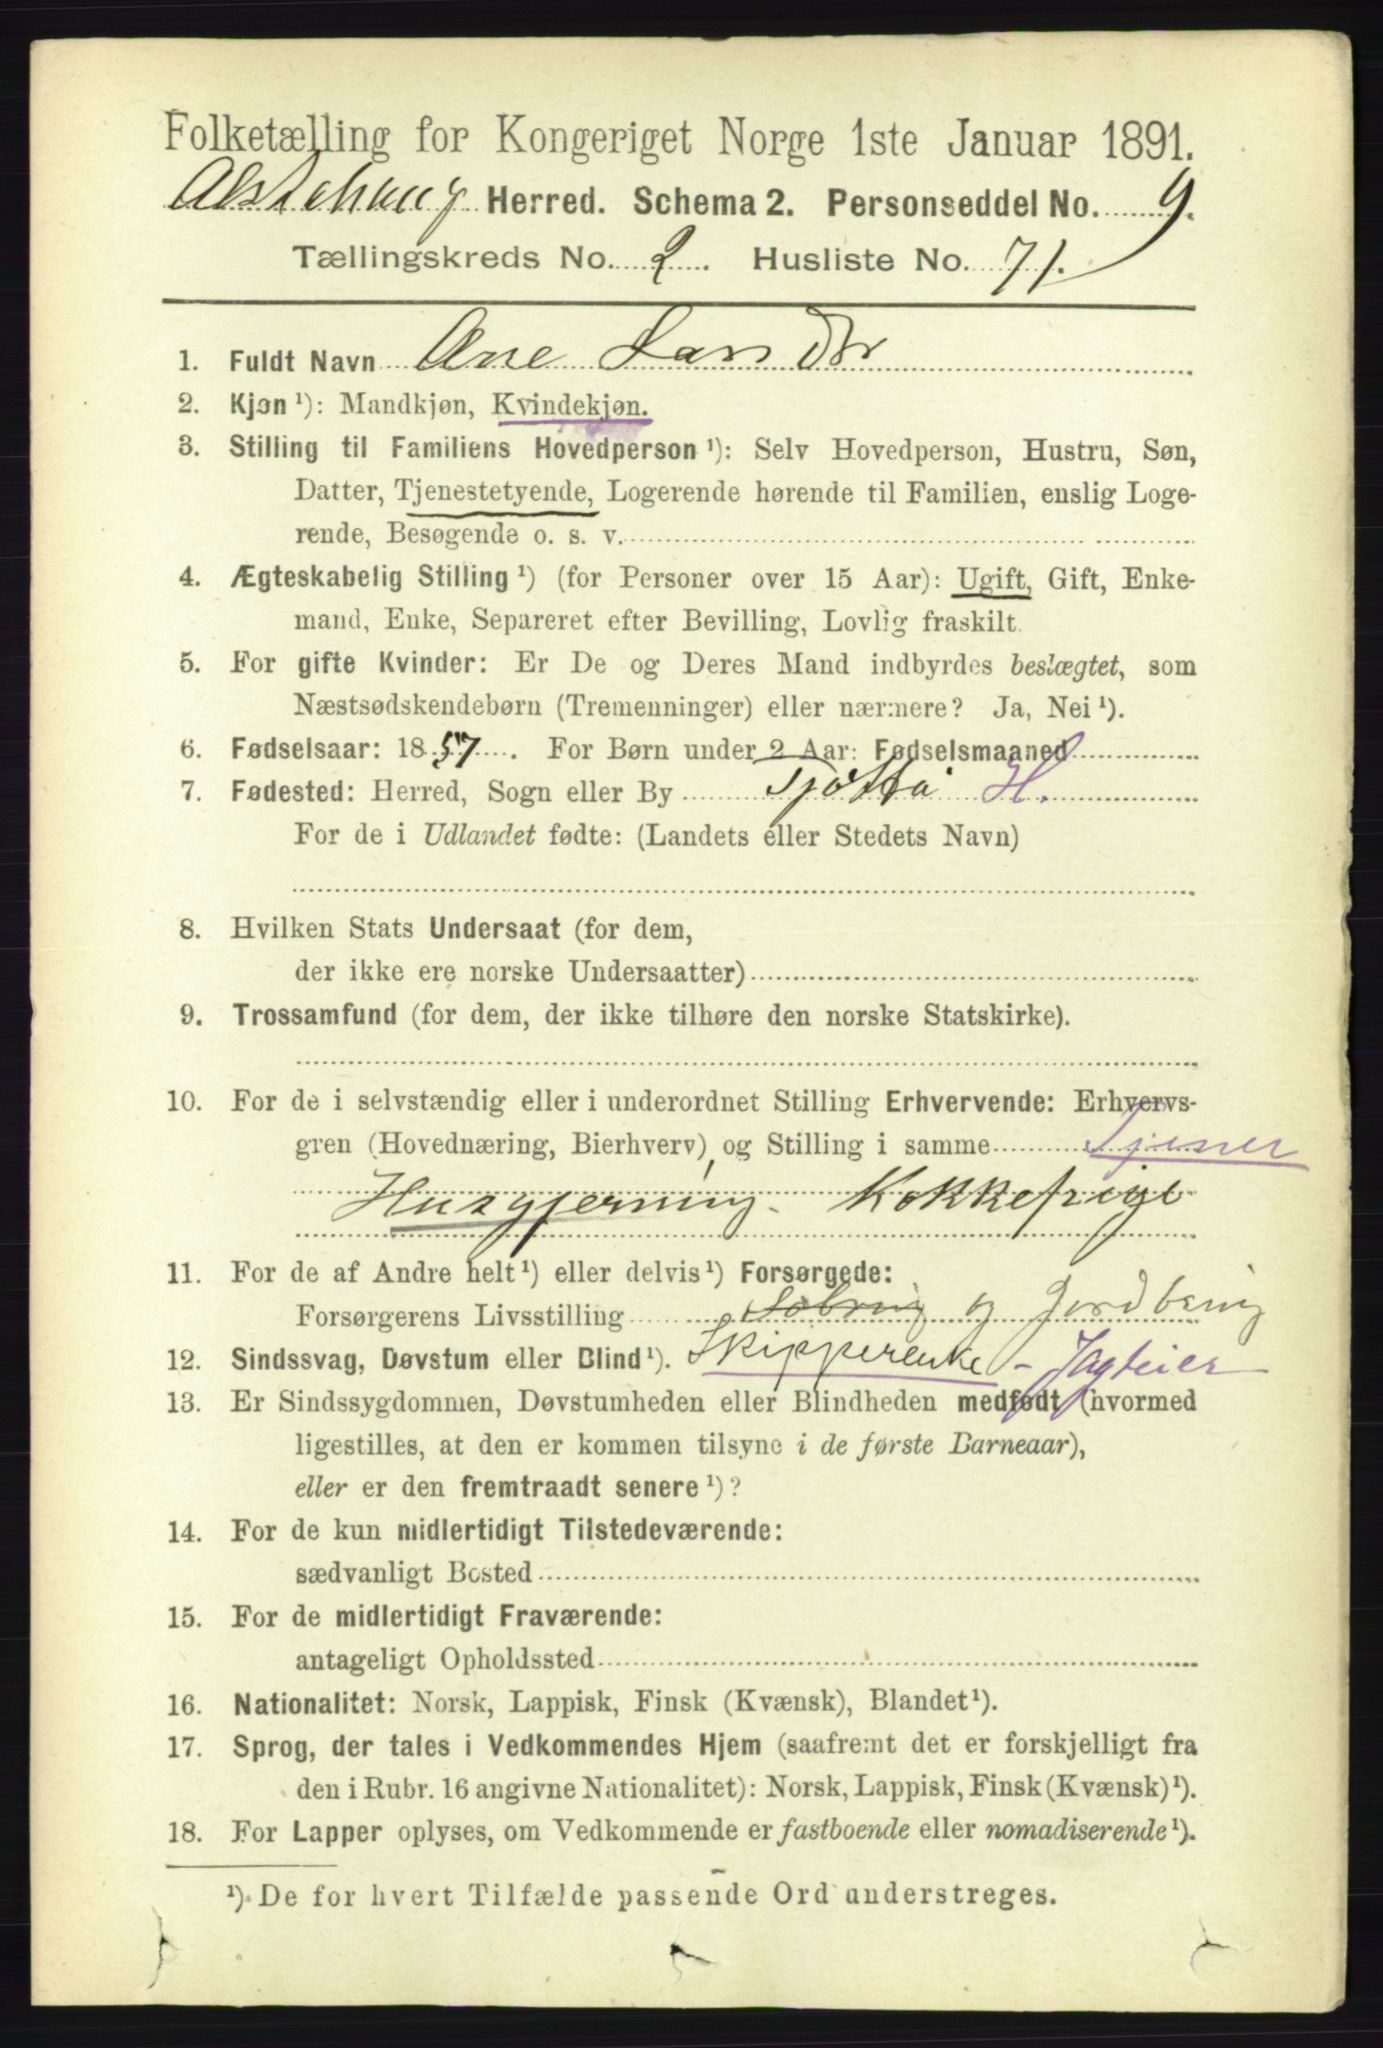 Folketælling for Kongeriget Norge 1ste Januar 1891.
Alstahaug Herred. Schema 2. Personseddel No. 9.
Tællingskreds No. 2. Husliste No. 71.
1. Fuldt Navn Ane Lars Dtr
2. Kjøn ¹): Mandkjøn, Kvindekjøn.
3. Stilling til Familiens Hovedperson ¹): Selv Hovedperson, Hustru, Søn,
Datter, Tjenestetyende, Logerende hørende til Familien, enslig Loge-
rende, Besøgende o. s. v.
4. Ægteskabelig Stilling ¹) (for Personer over 15 Aar): Ugift, Gift, Enke-
mand, Enke, Separeret efter Bevilling, Lovlig fraskilt.
5. For gifte Kvinder: Er De og Deres Mand indbyrdes beslægtet, som
Næstsødskendebørn (Tremenninger) eller nærmere? Ja, Nei ¹).
6. Fødselsaar: 1857. For Børn under 2 Aar: Fødselsmaaned
7. Fødested: Herred, Sogn eller By Tjøtta H.
For de i Udlandet fødte: (Landets eller Stedets Navn)
8. Hvilken Stats Undersaat (for dem,
der ikke ere norske Undersaatter)
9. Trossamfund (for dem, der ikke tilhøre den norske Statskirke).
10. For de i selvstændig eller i underordnet Stilling Erhvervende: Erhvervs-
gren (Hovednæring, Bierhverv) og Stilling i samme Tjener
Husgjerning. Kokkepige
11. For de af Andre helt ¹) eller delvis ¹) Forsørgede:
Forsørgerens Livsstilling og Jordbrug
12. Sindssvag, Døvstum eller Blind ¹). Skipperenke - Jagteier
13. Er Sindssygdommen, Døvstumheden eller Blindheden medfødt (hvormed
ligestilles, at den er kommen tilsyne i de første Barneaar),
eller er den fremtraadt senere ¹)?
14. For de kun midlertidigt Tilstedeværende:
sædvanligt Bosted
15. For de midlertidigt Fraværende:
antageligt Opholdssted
16. Nationalitet: Norsk, Lappisk, Finsk (Kvænsk), Blandet ¹).
17. Sprog, der tales i Vedkommendes Hjem (saafremt det er forskjelligt fra
den i Rubr. 16 angivne Nationalitet): Norsk, Lappisk, Finsk (Kvænsk) ¹).
18. For Lapper oplyses, om Vedkommende er fastboende eller nomadiserende ¹).
¹) De for hvert Tilfælde passende Ord understreges.